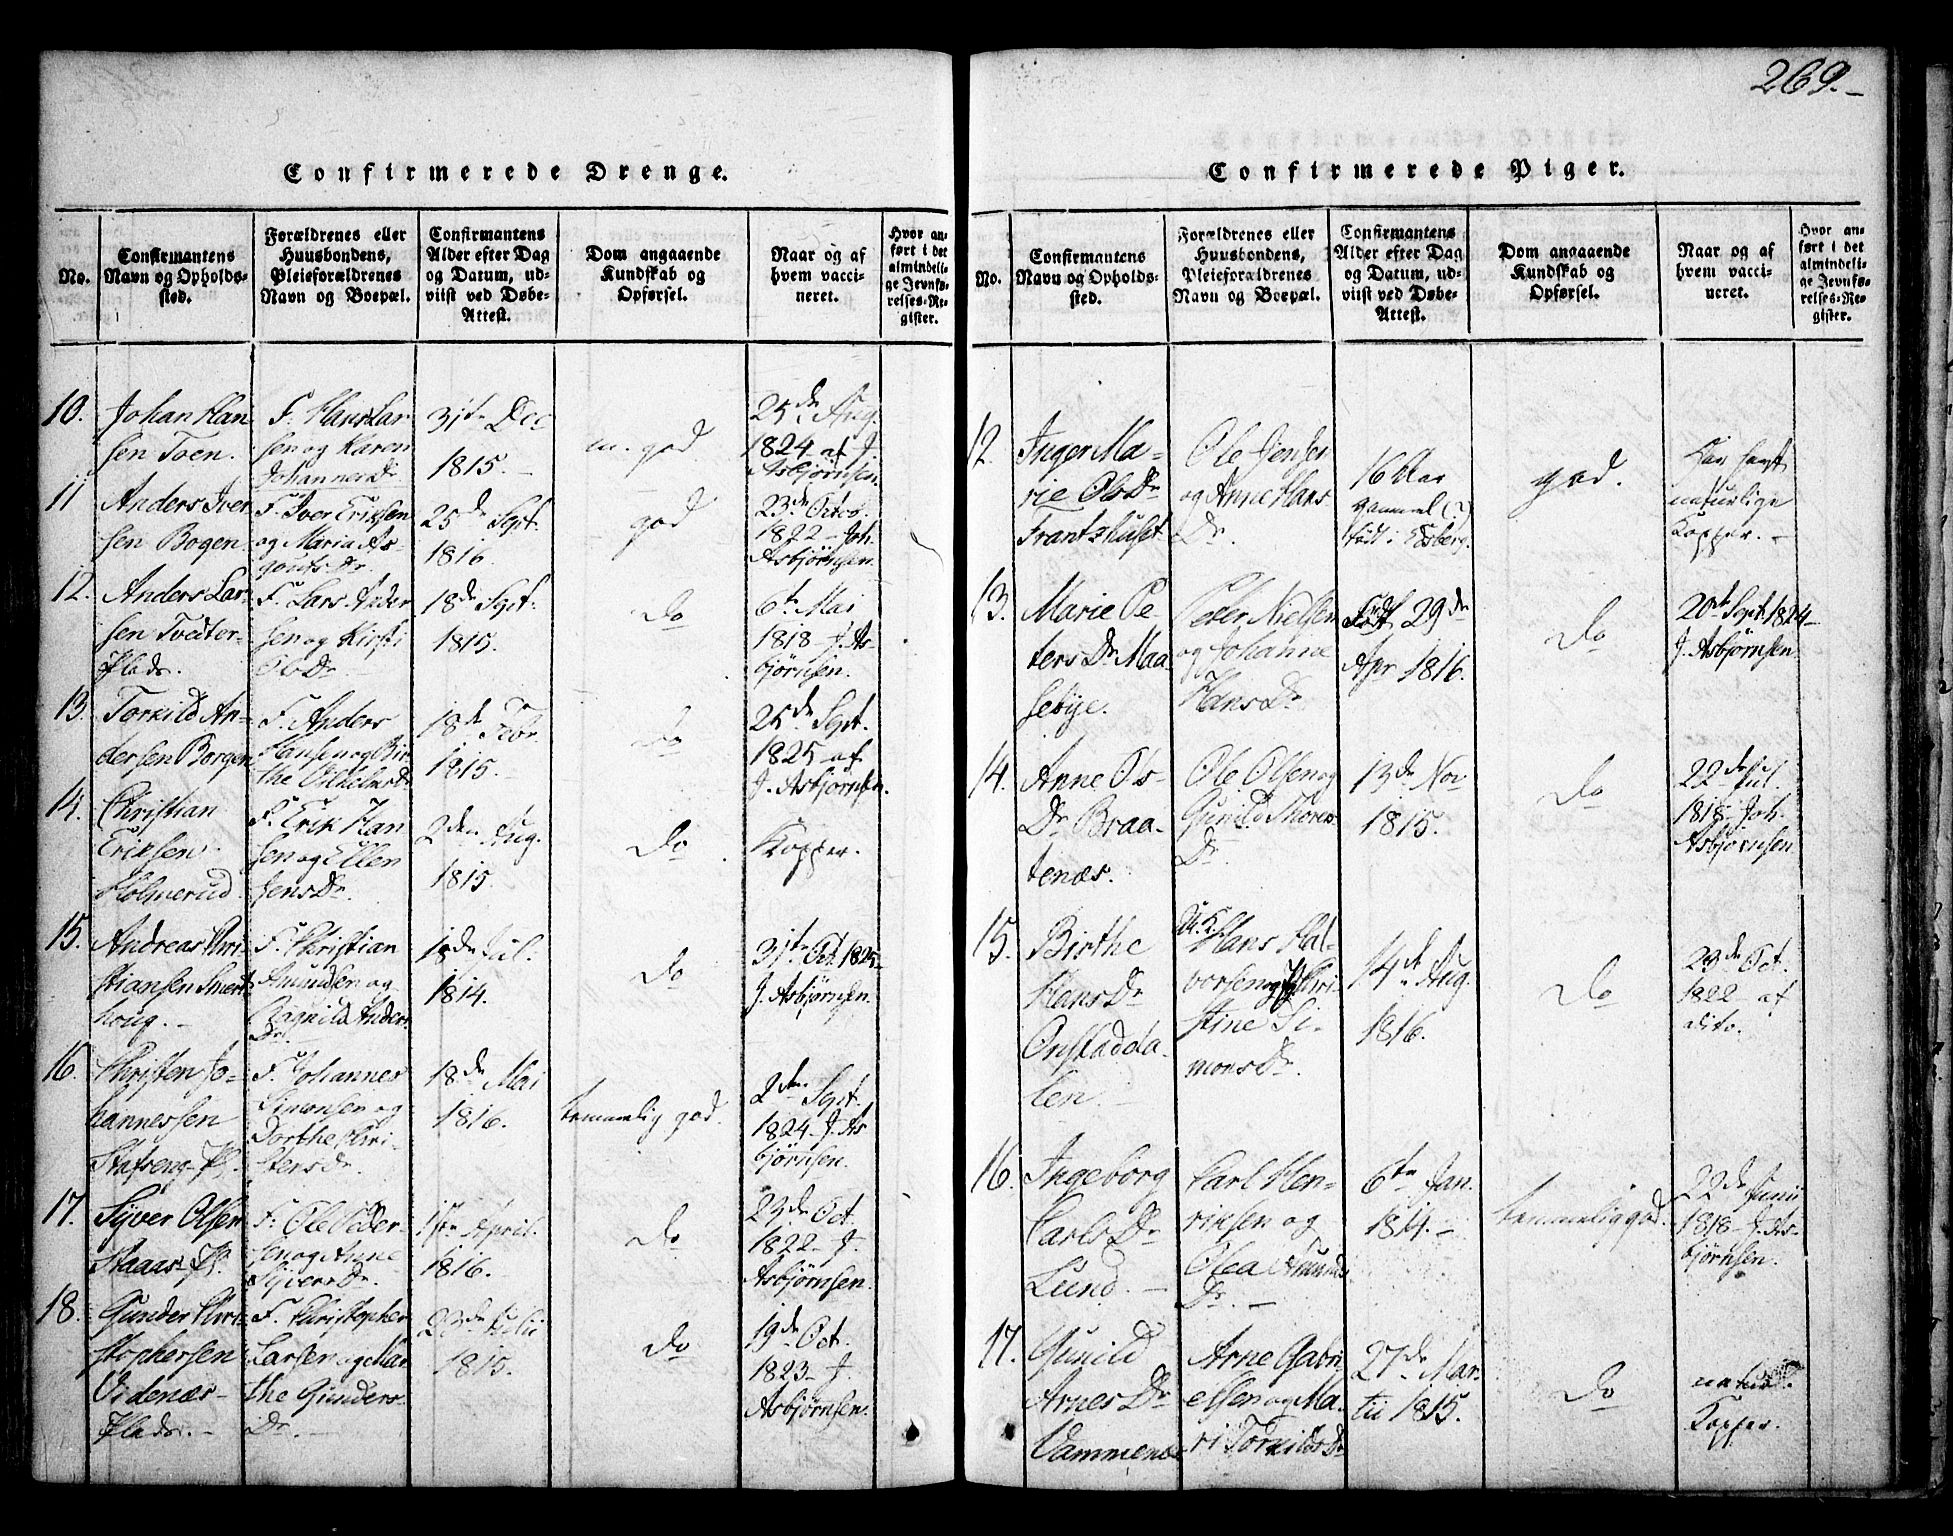 269.
Confirmerede Drenge.
No.
Confirmantens
Navn og Opholds-
sted.
Forældrenes eller
Huusbondens,
Pleieforældrenes
Navn og Boepæl.
Confirmantens
Alder efter Dag
og Datum, ud-
viist ved Døbe-
Attest.
Dom angaaende
Kundskab og
Opførsel.
Naar og af
hvem vacci-
neret.
Hvor an-
ført i det
almindeli-
ge Jevnfø-
relses-Re-
gister.
10.
Johan Han
sen Toen.
F. Hans Lar
sen og Karen
Johannes Dr
31te Dec
1815.
m. god
25de Aug.
1824 af J.
Asbjørnsen.
11
Anders Iver
sen Bogen
F. Iver Eriksen
og Maria As-
gouts Dr.
25de Sept.
1816.
god
23de Octob.
1822 - Joh.
Asbjörnsen.
12.
Anders Lar-
sen Tvedter-
Plads.
F. Lars Ander
sen og Kirsti
Ols Dr.
18de Sept.
1815.
Do
6te Mai
1818 - J. As-
bjørnsen.
13.
Torkild An-
dersen Borgen
F. Anders
Hansen og Bir-
the
18de Febr.
1815.
Do
25de Sept.
1825 af
J. Asbjørnsen.
14.
Christian
Eriksen
Holmerud.
F. Erik Han
sen og Ellen
Jens Dr.
2den Aug.
1815.
Do
Kopper.
15.
Andreas Chri-
stiansen
houg.
F. Christian
Amundsen og
Ragnild Anders
Dr.
18de Jul.
1814.
Do
31te Oct. 1825
J. Asbjørnsen.
16.
Christen Jo-
hannessen
Stafseng-Pl.
F. Johannes
Simonsen og
Dorthe Chri-
stens Dr.
18de Mai
1816.
temmelig god.
2den Sept.
1824 - J. As
bjørnsen.
17.
Syver Olsen
Haaes-Pl.
F. Ole Peder-
sen og Anne
Syvers Dr.
April.
1816.
Do
23de Oct.
1822 - J.
Asbjørnsen.
18.
Gunder Chri-
stophersen
Videnæs-
Plads.
F. Christopher
Larsen og Mar
the Gunders-
Dr.
23de Julii
1815.
Do
19de Oct.
1823 - J.
Asbjørnsen.
Confirmerede Piger.
No.
Confirmantens
Navn og Opholds-
sted.
Forældrenes eller
Huusbondens,
Pleieforældrenes
Navn og Boepæl.
Confirmantens
Alder efter Dag
og Datum, ud-
viist ved Døbe-
Attest.
Dom angaaende
Kundskab og
Opførsel.
Naar og af
hvem vacci-
neret.
Hvor an-
ført i det
almindeli-
ge Jevnfø-
relses-Re-
gister.
12.
Inger Ma-
rie Ols Dr
Frantzhuset
Ole Jensen
og Anne Hans
Dr.
16 Aar
gammel (?)
født i Edsberg.
god.
Har havt
naturlige
Kopper.
13.
Marie Pe-
ters Dr. Maa-
sebye.
Peter Nielsen
og Johanne
Hans Dr.
Født 29de
Apr 1816.
Do
20de Sept. 1824
J. Asbjørnsen.
14.
Anne Ols-
Dr. Braa-
tenæs.
Ole Olsen og
Gunild Thores-
Dr.
13de Nov
1815.
Do
22de Jul.
1818 - Joh.
Asbjørnsen
15.
Birthe
Hans Dr
Onstadda-
len.
Hans Hal-
vorsen og Chri-
stine Si-
mons Dr.
14de Aug.
1816.
Do
23de Oct.
1822 - af
dito.
16.
Ingeborg
Carls Dr
Lund.
Carl Hen-
riksen og
Olea Amunds
Dr.
6te Jan.
1814.
temmelig god.
22de Junii
1818 - J. As-
bjørnsen.
17.
Gunild
Arnes Dr
Vammenæs
Arne Gabri
elsen og Ma-
ri Torkilds Dr
27de Mar-
tii 1815.
Do
naturl.
Kopper.